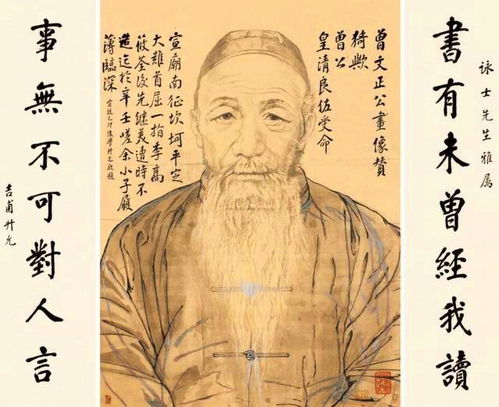 書有未曾經我讀
詠士先生雅屬
曾文正公畫像贊
猗歟
曾公
皇清良佐受命
宣廟南征坎坷平定
大難首屈一指李高
後先繼美遭時不
造迄於辛壬嗟余小子履
薄臨深
事無不可對人言
吉甫升允